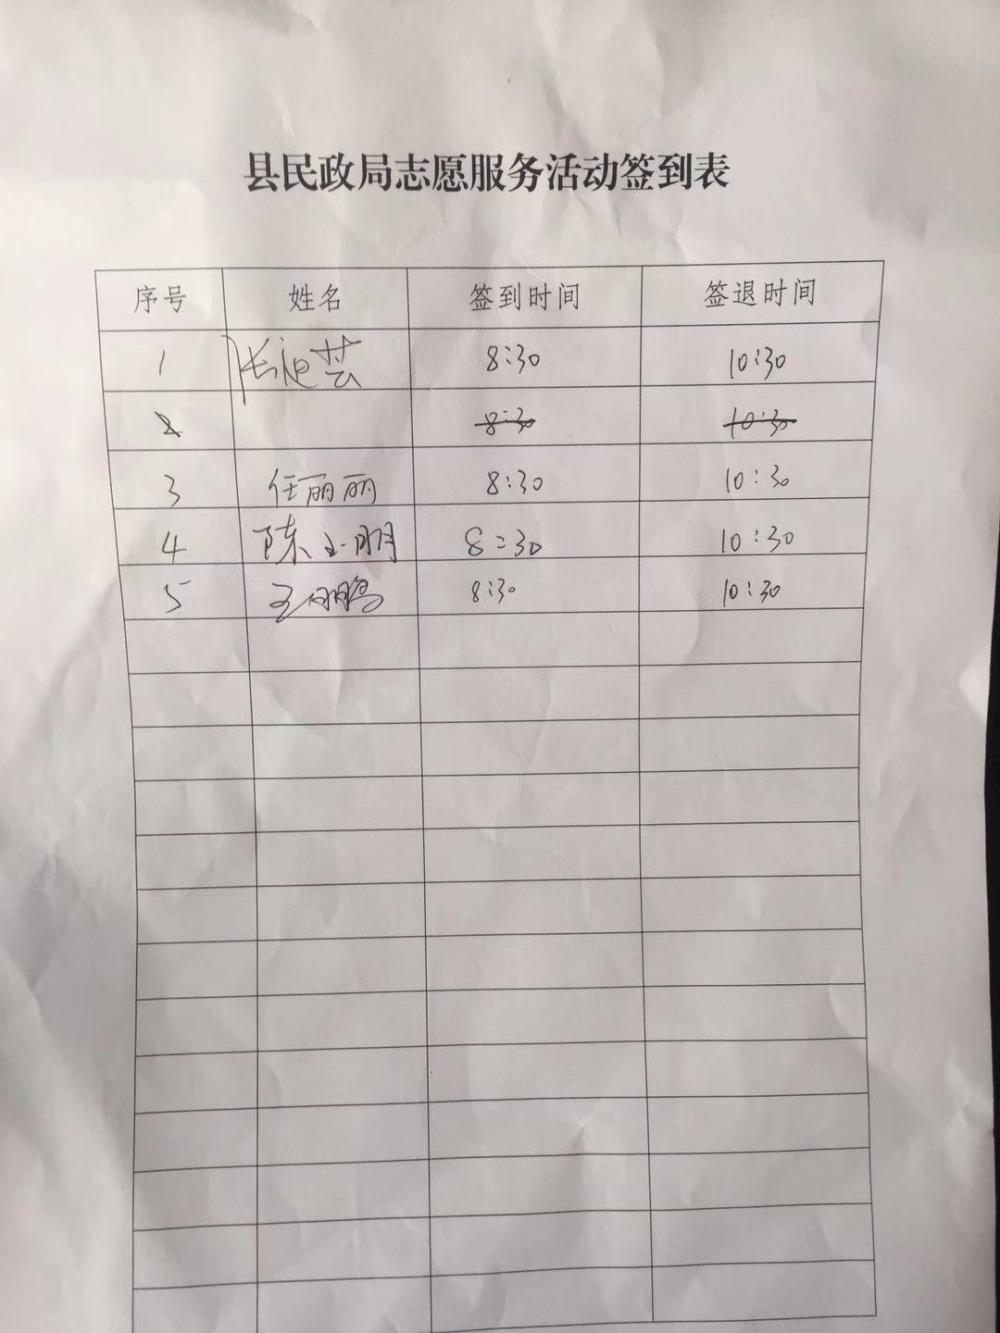 县民政局志愿服务活动签到表
序号 姓名 签到时间 签退时间
1 8:30 10:30
2 8:30 10:30
3 任丽丽 8:30 10:30
4 陈玉明 8:30 10:30
5 王丽鹏 8:30 10:30